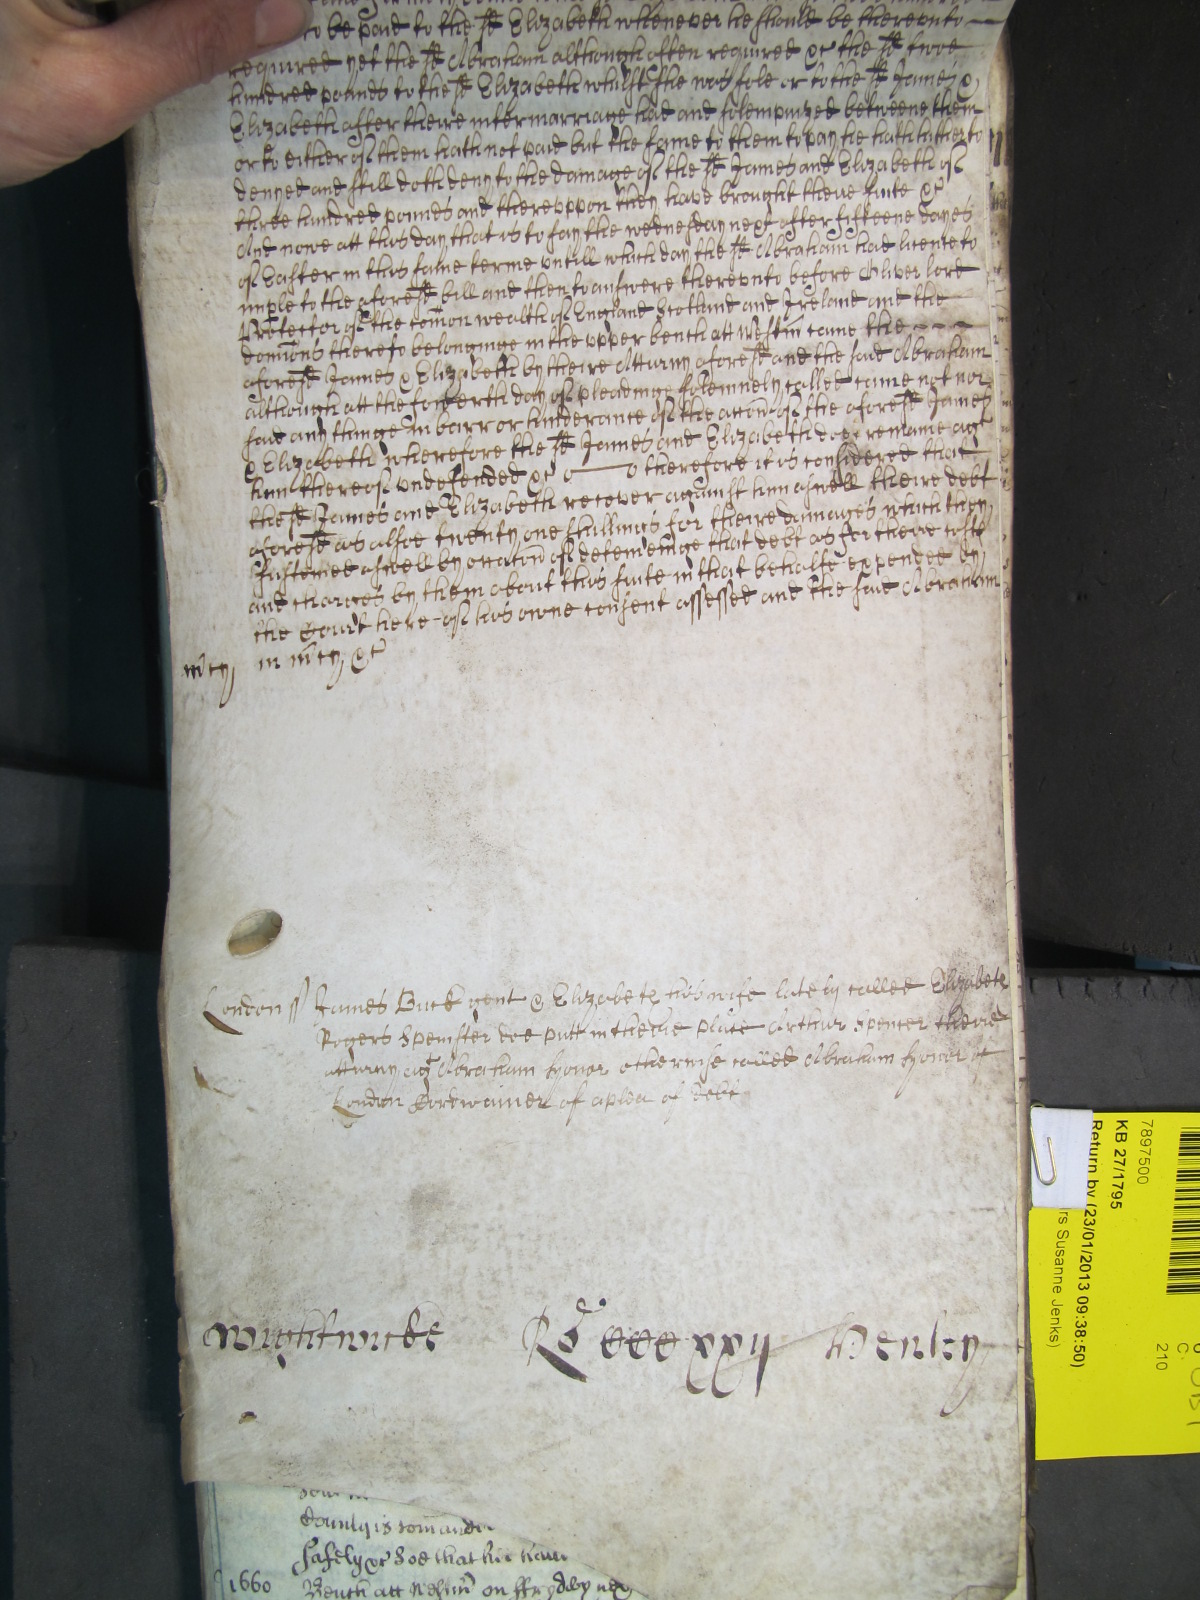 to be paid to the sd Elizabeth whenever he should be therevnto
required yet the sd Abraham although often required &c the sd twoe
hundred pounds to the sd Elizabeth whilst she was sole or to the sd James &
Elizabeth after theire intermarriage had and solempnized betweene them
or to either of them hath not paid but the same to them to pay he hath hitherto
denyed and still doth deny to the damage of the sd James and Elizabeth of
three hundred pounds and therevppon they have brought theire suite &c
And nowe att this day that is to say the wednesday next after fifteene dayes
of Easter in this same terme vntill which day the sd Abraham had licence to
imple to the aforesd bill and then to answere therevnto before Oliver lord
Protector of the comon wealth of England Scotland and Ireland and the
domions thereto belonginge in the vpper bench att Westm came the
aforesd James & Elizabeth by theire Atturny aforesd and the said Abraham
although att the fowerth day of pleadinge solemnely called came not nor
said any thinge in barr or hinderance of the accon of the aforesd James
& Elizabeth wherefore the sd James and Elizabeth doe remaine agt
him thereof vndefended &c therefore it is considered that
the sd James and Elizabeth recover against him aswell theire debt
aforesd as alsoe twenty one shillings for theire damages which they
susteined aswell by occacon of deteineinge that debt as for theire costs
and charges by them about this suite in that behalfe expended by
the Court here of his owne consent assessed and the said Abraham
mcy in mcy &c
London ss James Buck gent & Elizabeth his wife lately called Elizabeth
Rogers Spenister doe putt in theire place Arthur Spencer theire
atturny agt Abraham hyonor otherwise called Abraham hyonor of
London Cordwainer of a plea of debt
Wightwicke Ro ccccxxij Henley
County is comanded
safely &c Soe that hee have
1660 Bench att Westm on ffryday nex
7897500
KB 27/1795
Return by (23/01/2013 09:38:50)
rs Susanne Jenks)
210